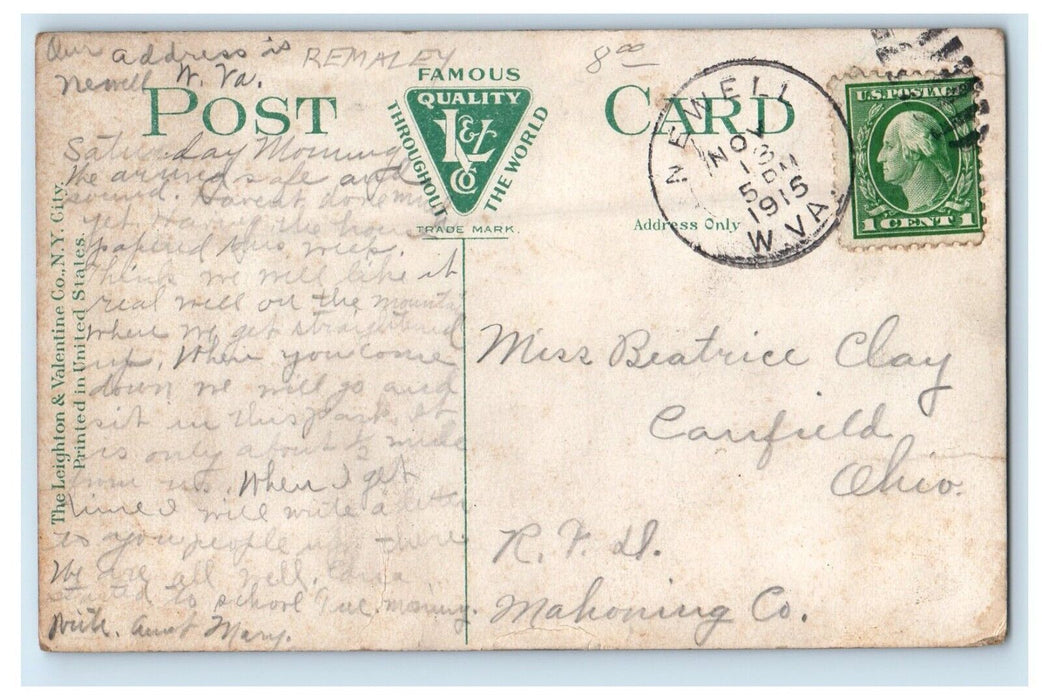 Our address is
Newell W. Va.
REMALEY
8 00
POST CARD
FAMOUS
QUALITY
L & V
CO
THROUGHOUT THE WORLD
TRADE MARK.
NEWELL
NOV
13
5 PM
1915
W. VA.
U.S. POSTAGE
1 CENT 1
Address Only
The Leighton & Valentine Co., N.Y. City.
Printed in United States.
Saturday Morning
We arrived safe and
sound. Havent done much
yet. Having the house
papered this week.
Think we will like it
real well on the mountain
where we get straightened
up. When you come
down we will go and
sit in this park. It
is only about 1/2 mile
from us. When I get
time I will write a letter
to you people up there
We are all well.
started to school Tue. morning.
Write. Aunt Mary.
Miss Beatrice Clay
Canfield
Ohio.
R. F. D.
Mahoning Co.